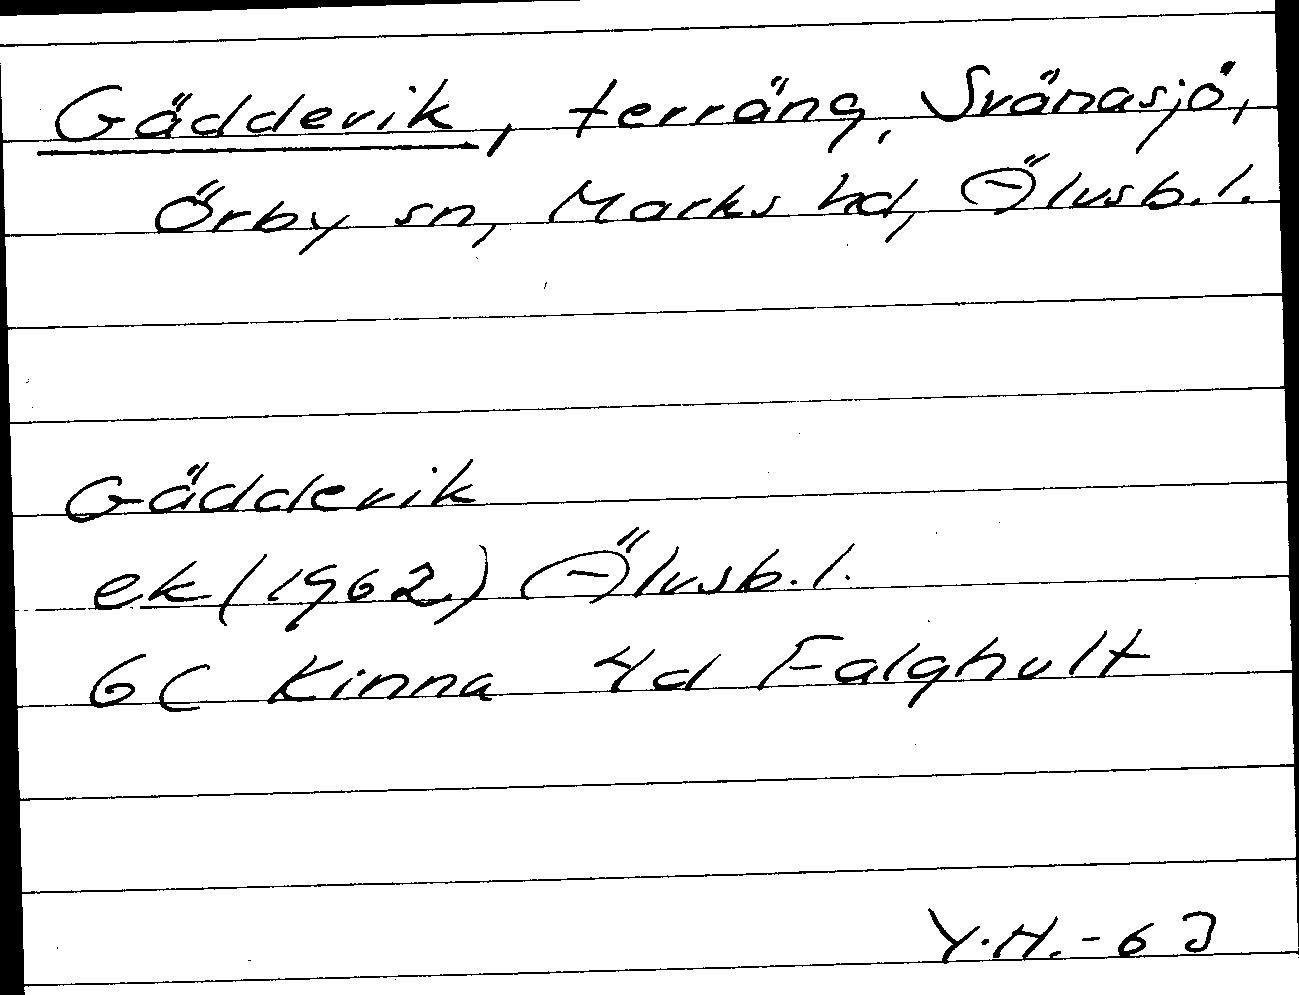 Gäddevik, terräng, Svänasjö,
Örby sn, Marks hd, Älvsb.l.
Gäddevik
ek (1962) Älvsb.l.
6C Kinna 4d Falghult
Y.H.-63